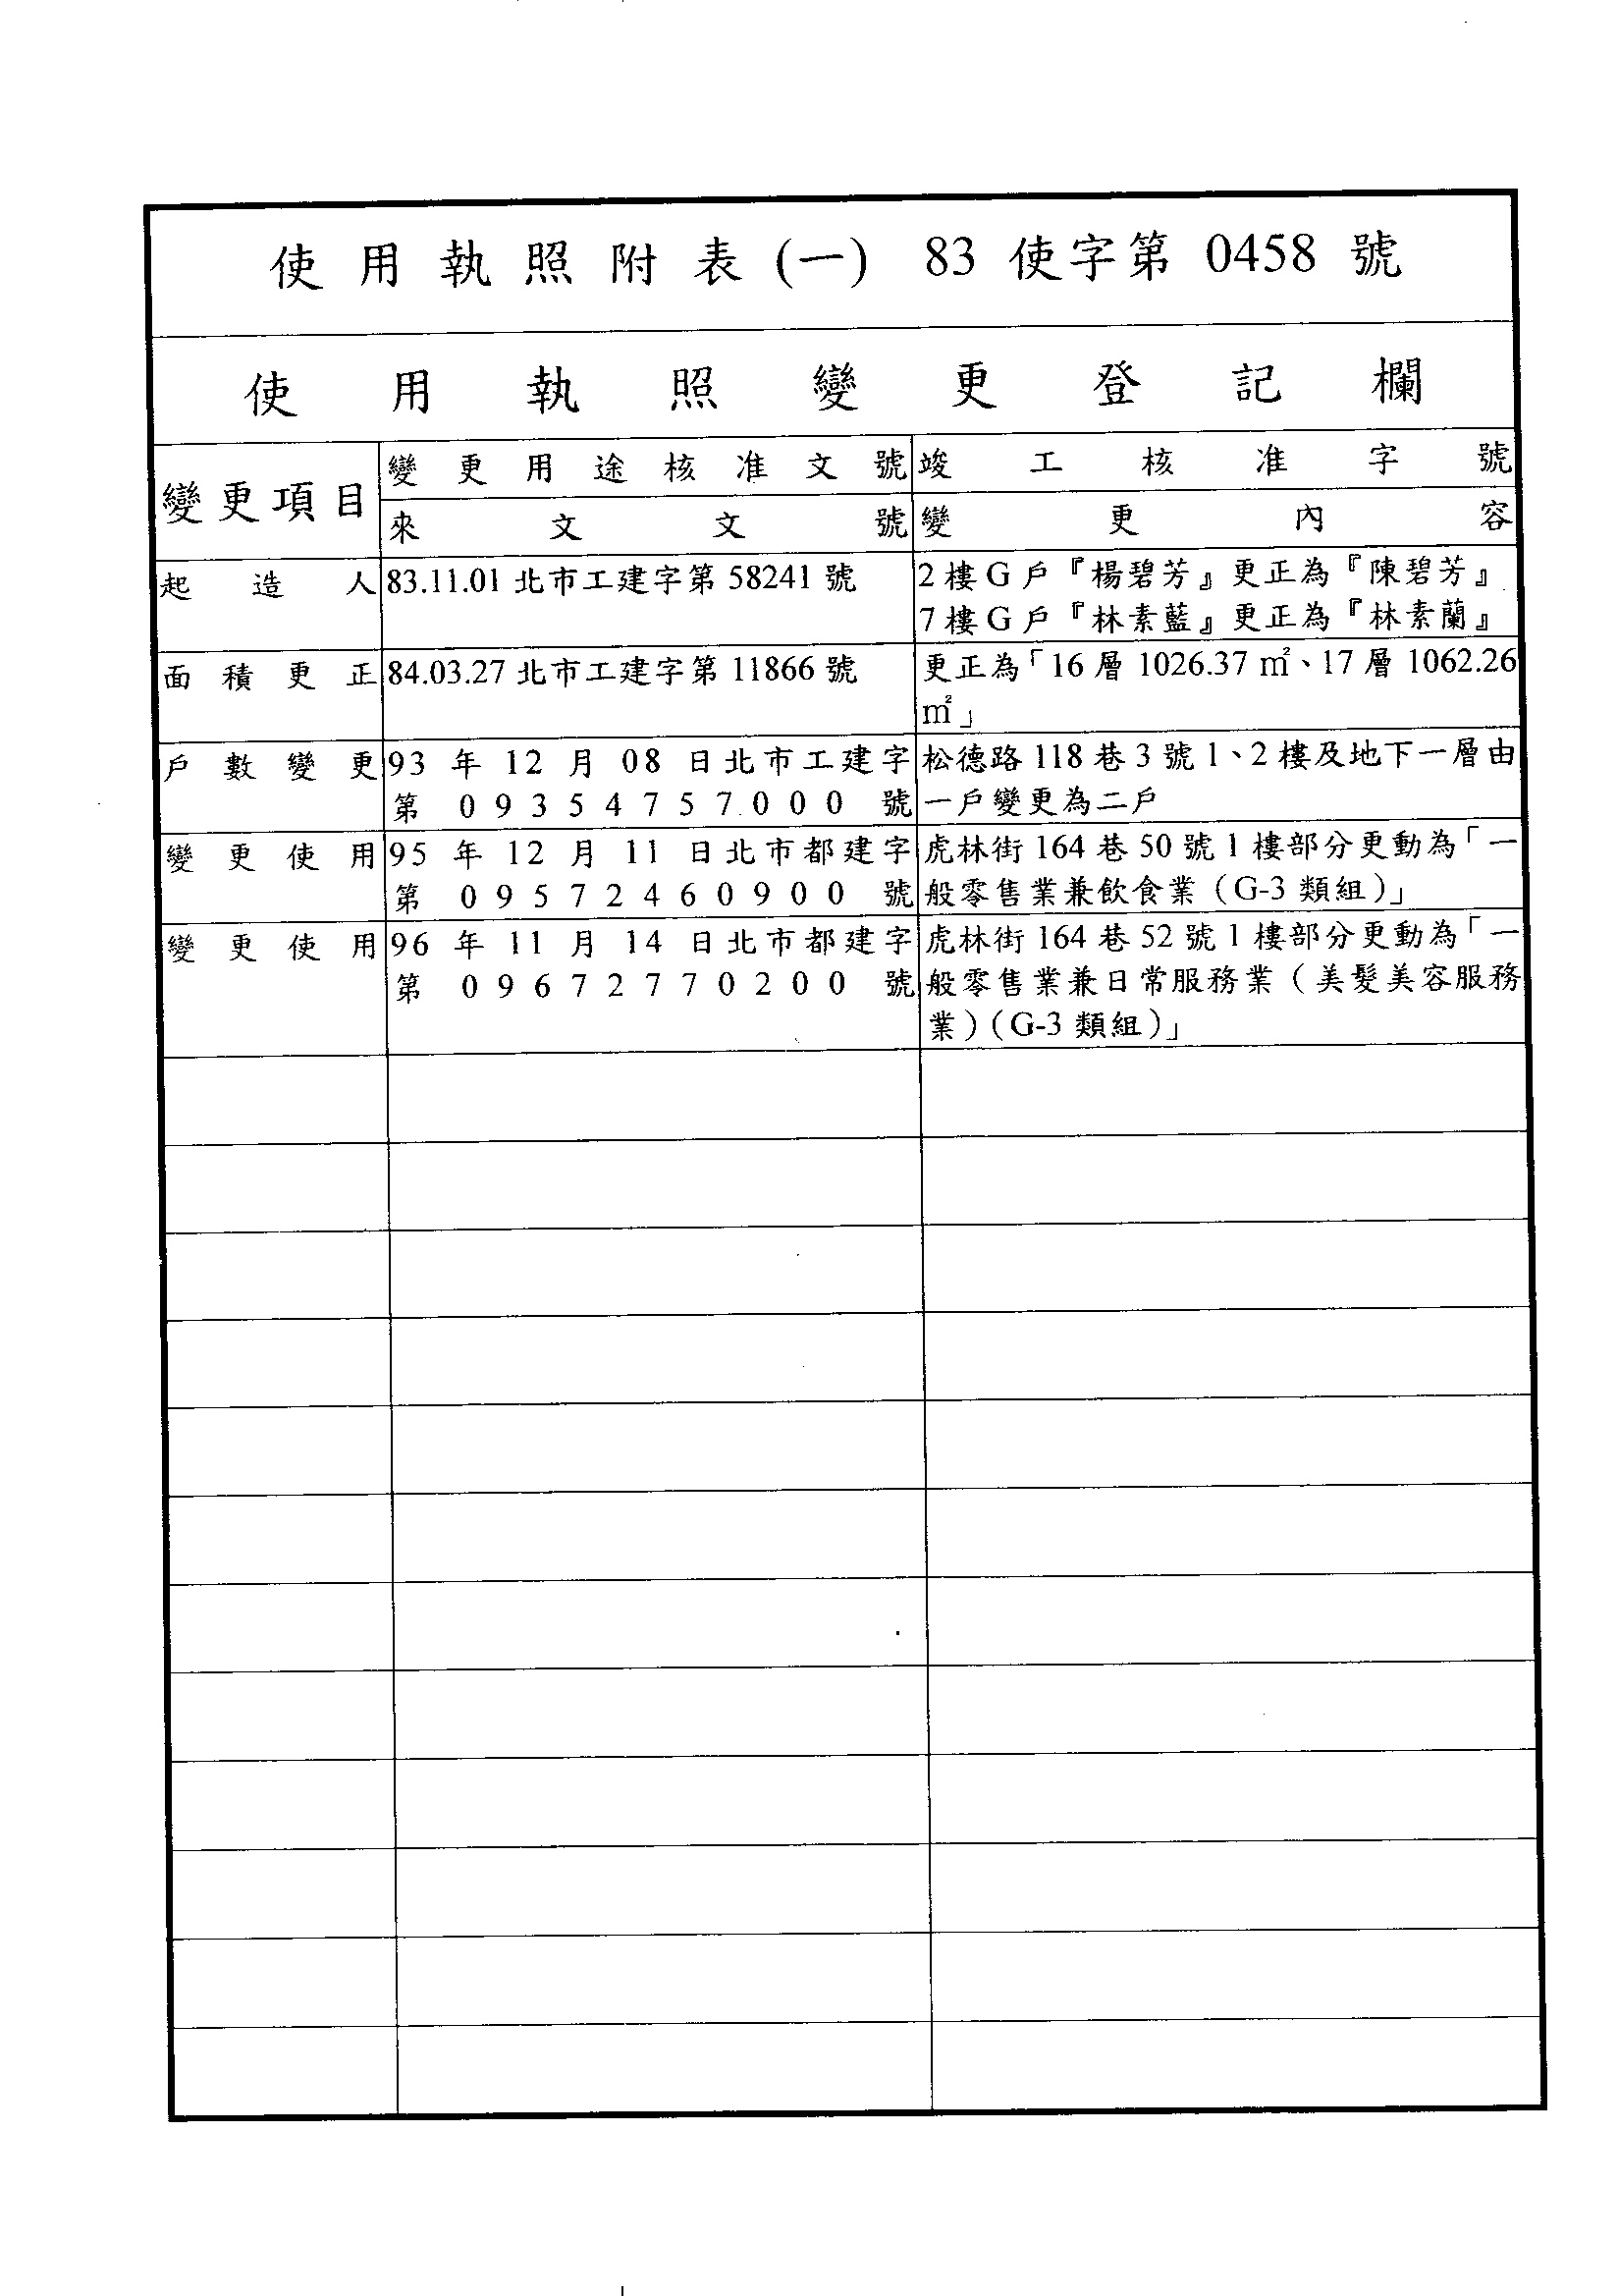 使用執照附表(一) 83 使字第 0458 號
使用執照變更登記欄
變更項目
變更用途核准文號
竣工核准字號
來文文號
變更內容
起造人
83.11.01 北市工建字第 58241 號
2 樓 G 戶『楊碧芳』更正為『陳碧芳』
7 樓 G 戶『林素藍』更正為『林素蘭』
面積更正
84.03.27 北市工建字第 11866 號
更正為「16 層 1026.37 ㎡、17 層 1062.26
㎡」
戶數變更
93 年 12 月 08 日北市工建字
第 09354757000 號
松德路 118 巷 3 號 1、2 樓及地下一層由
一戶變更為二戶
變更使用
95 年 12 月 11 日北市都建字
第 09572460900 號
虎林街 164 巷 50 號 1 樓部分更動為「一
般零售業兼飲食業（G-3 類組）」
變更使用
96 年 11 月 14 日北市都建字
第 09672770200 號
虎林街 164 巷 52 號 1 樓部分更動為「一
般零售業兼日常服務業（美髮美容服務
業）（G-3 類組）」